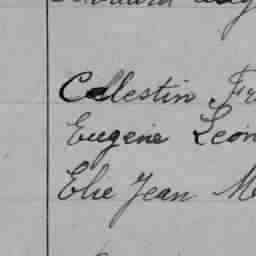 Celestin Fr
Eugene Leon
Elie Jean M